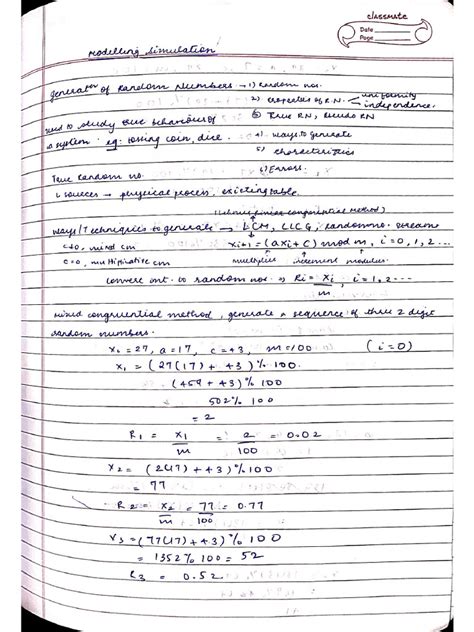 classmate
Date
Page
Modelling Simulation
generator of Random Numbers → 1) Random nos.
2) Properties of RN. uniformity
independence.
used to study the behaviour of 3) True RN, Pseudo RN
a system. eg: tossing coin, dice. 4) ways to generate
5) characteristics
True random no. 6) Errors.
↳ sources → physical process,
(linear congruential method)
ways/Techniques to generate → LCM, CLCG, random no. stream
c≠0, mixed cm Xi+1 = (aXi + C) mod m, i=0, 1, 2...
c=0, multiplicative cm multiplier increment modulus.
convert int. to random nos. ⇒ Ri = Xi/m, i = 1, 2...
mixed congruential method, generate a sequence of three 2 digit
random numbers.
X0 = 27, a = 17, c = 43, m = 100 (i=0)
X1 = (27(17) + 43) % 100
(459 + 43) % 100
502 % 100
= 2
R1 = X1/m = 2/100 = 0.02
X2 = (2(17) + 43) % 100
= 77
R2 = X2/m = 77/100 = 0.77
X3 = (77(17) + 43) % 100
= 1352 % 100 = 52
R3 = 0.52